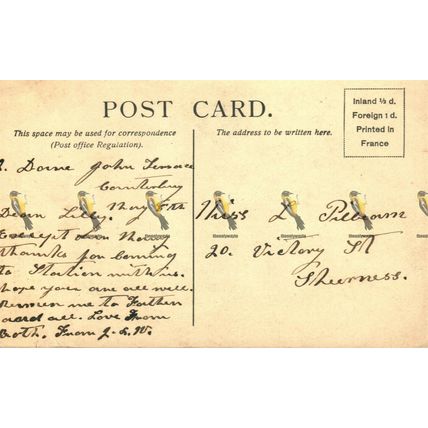 POST CARD.
Inland ½ d.
Foreign 1 d.
Printed in
France
This space may be used for correspondence
(Post office Regulation).
The address to be written here.
Dane John Terrace
Canterbury
May 5th
Dear Lilly.
Except
thanks for coming
to Station with us.
hope you are all well.
Remem me to Father
and all. Love from
Both. From J. & W.
Miss L Pilliam
20. Victory St
Sheerness.